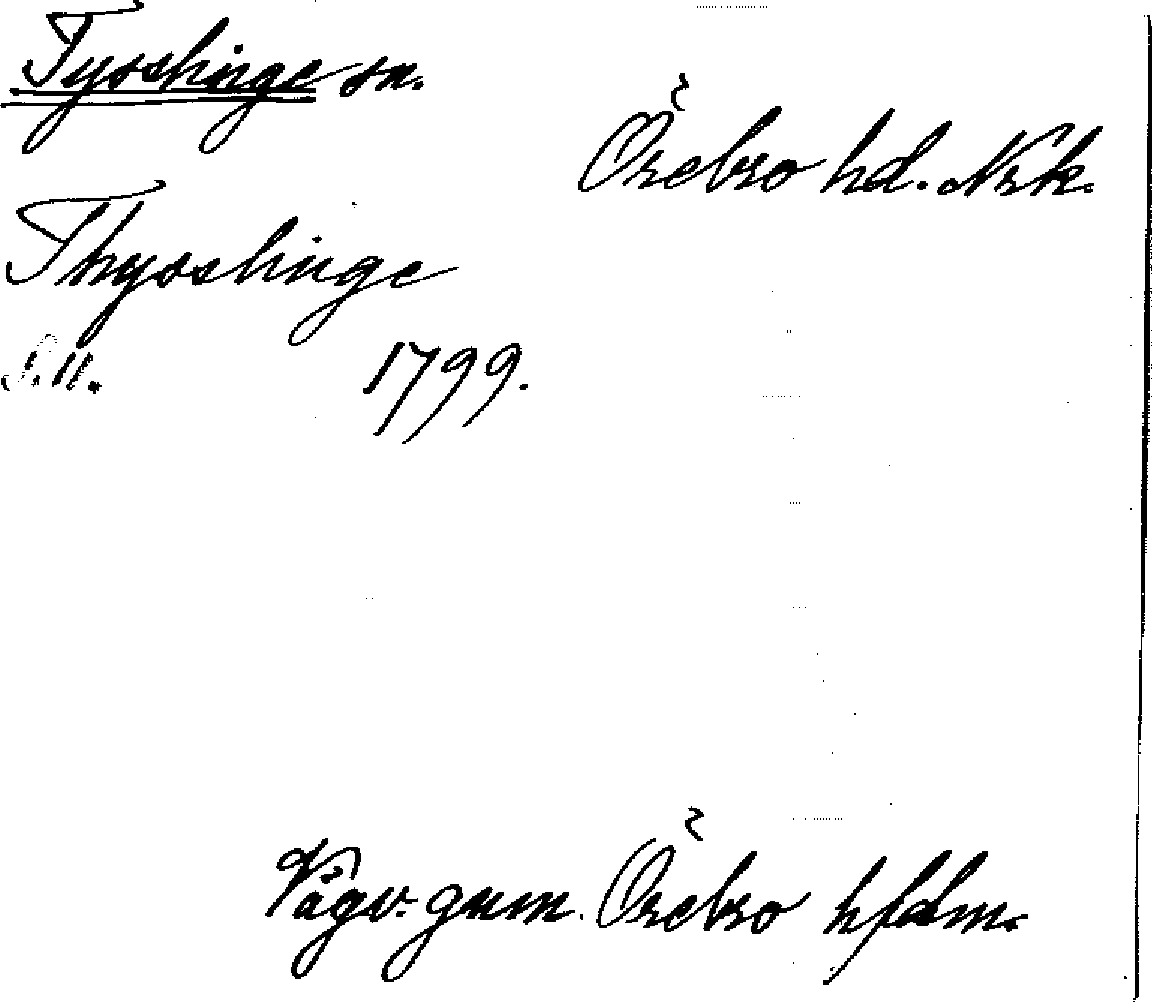 Tysslinge sn.
Örebro hd. Nrk.
Thysslinge
S. 11. 1799.
Vägv. gnm. Örebro hfdm.